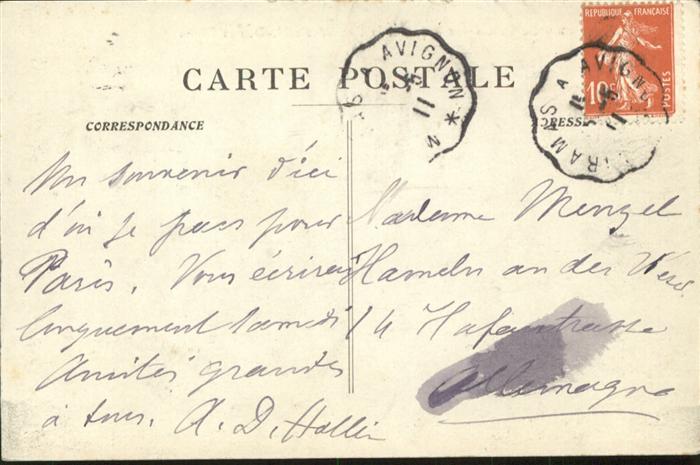 CARTE POSTALE
CORRESPONDANCE
ADRESSE
RÉPUBLIQUE FRANÇAISE
10c
POSTES
MIRAMAS A AVIGNON
11
Un souvenir d'ici
d'où je pars pour
Paris. Vous écrirai
longuement samedi
Amitiés grandes
à tous. A. D.
Madame Menzel
Hameln an der Weser
14 Hafenstrasse
Allemagne